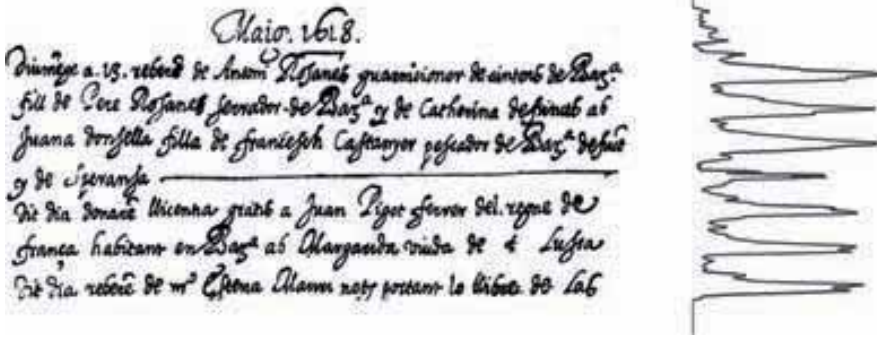 Maio. 1618.
Diumẽge a. 13. reberẽ de Antoni Rosanes guarnicioner de cintons de Barᵃ
fill de Pere Rosanes serrador de Barᵃ y de Catherina defuncts ab
Juana donsella filla de francesch Castanyer pescador de Barᵃ defunt
y de Speransa
Dit dia llicentia gratis a Juan Piget ferrer del regne de
franca habitant en Barᵃ ab Margarida viuda de
Dit dia reberẽ de mº Esteva noty portant lo llibre de las